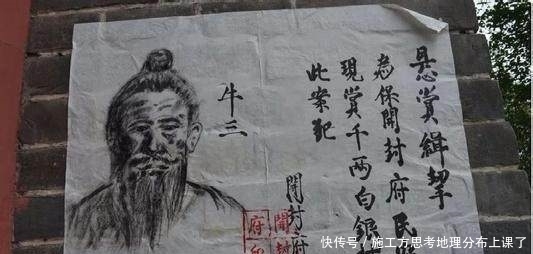 悬赏緝拏
為保開封府民
現賞千两白銀
此案犯
開封府
牛三
開封
府印
快传号／施工方思考地理分布上课了